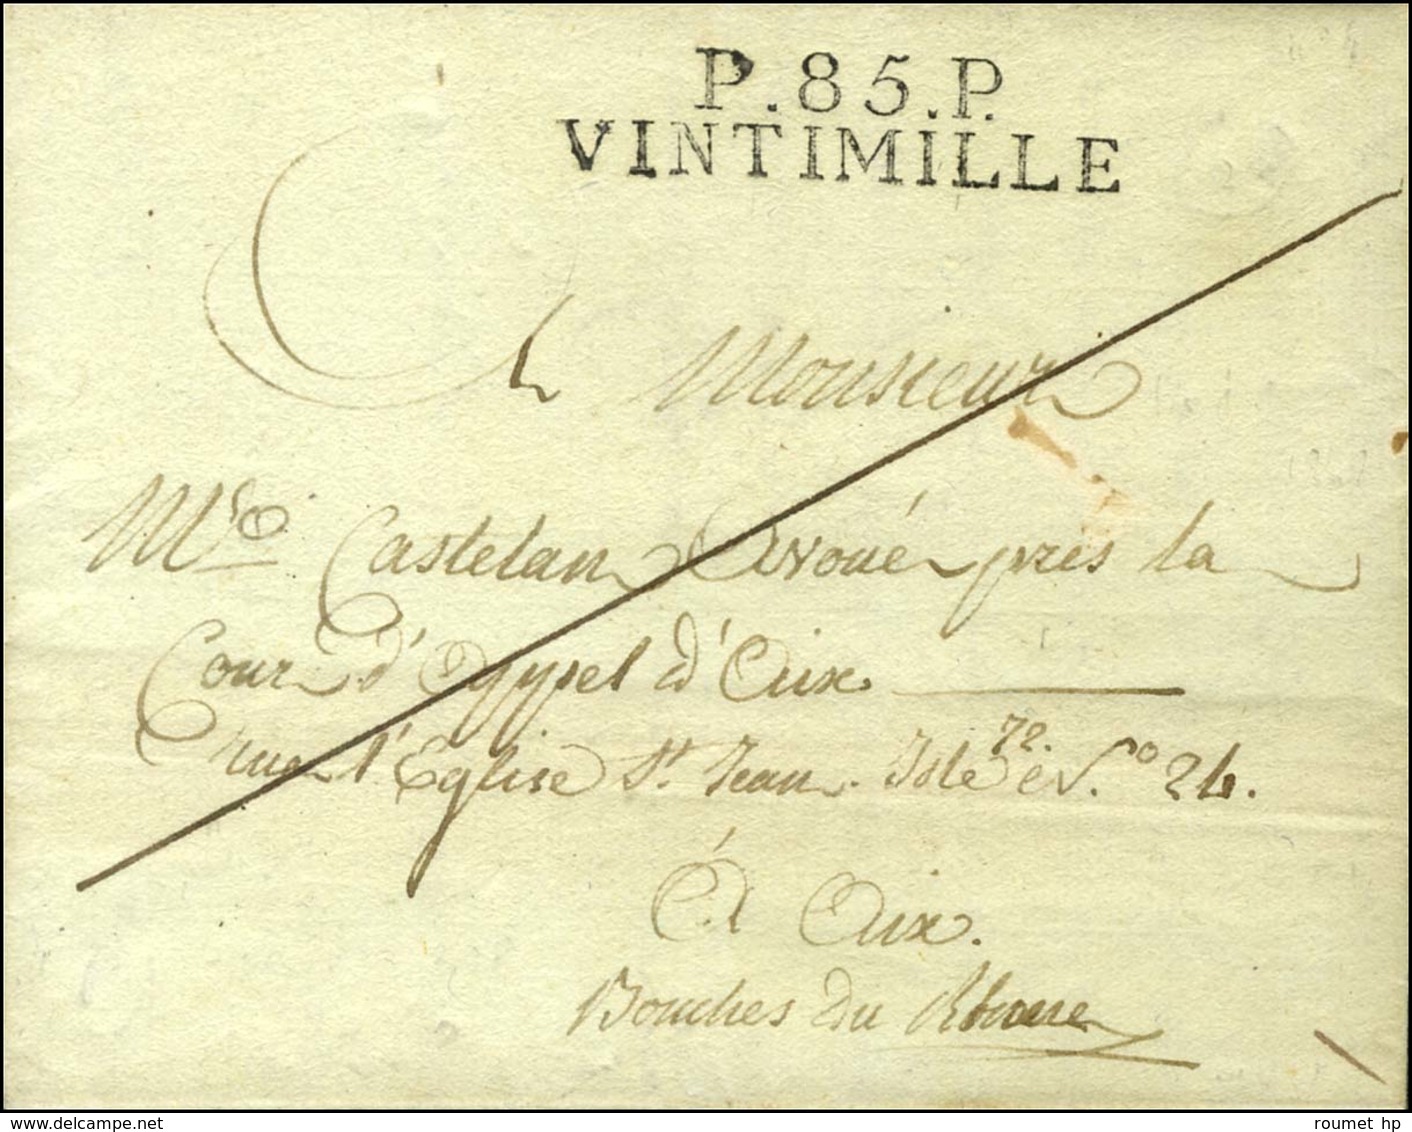 P.85.P.
VINTIMILLE
A Monsieur
Castelan Avoué près la
Cour d'Appel d'Aix
rue l'Eglise St. Jean. Isle 72. N.° 24.
À Aix.
Bouches du Rhone
delcampe.net
roumet hp